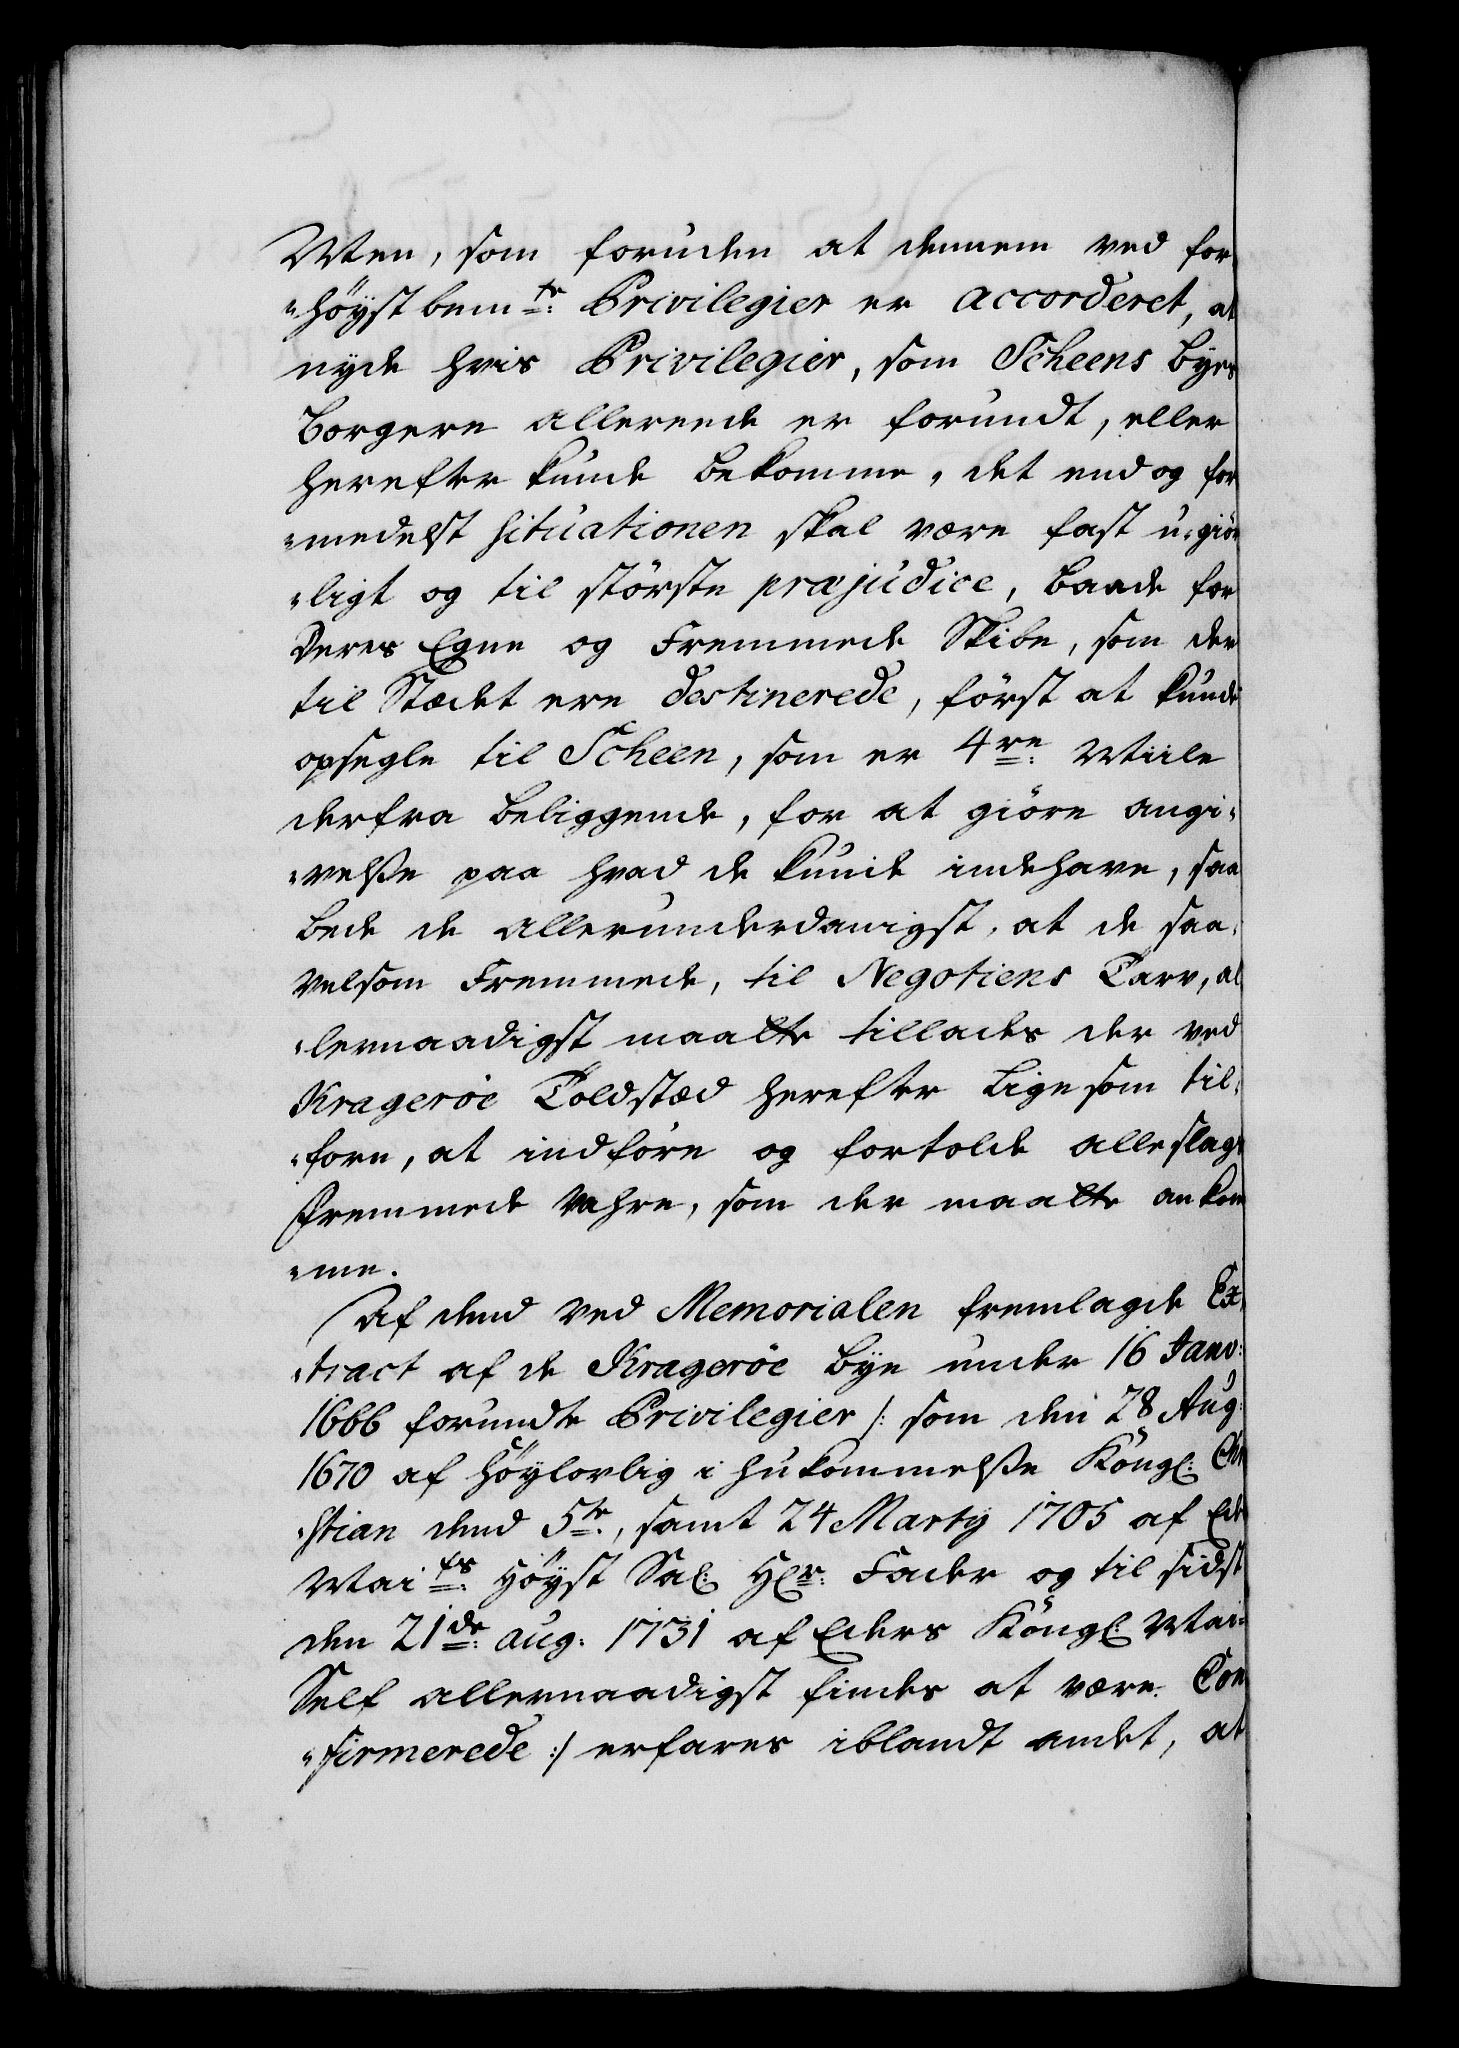 Men, som foruden at dennem ved for-
"höystbem.te Privilegier er accorderet, at
nyde hvis Privilegier, som Scheens Byes
Borgere allereede er forundt, eller
herefter kunde bekomme, det end og for
"medelst situationen skal være fast u-giör
"ligt og til störste præjudice, baade for
Deres Egne og Fremmede Skibe, som der
til Stædet ere destinerede, först at kunde
opsegle til Scheen, som er 4re Miile
derfra beliggende, for at giöre angi-
"velße paa hvad de kunde indehave, saa
bede de allerunderdanigst, at de saa-
velsom Fremmede, til Negotiens Tarv, al
"lernaadigst maatte tillades der ved
Kragerøe Toldstæd herefter Ligesom til-
"forn, at indföre og fortolde alle slags
fremmede Vahre, som der maatte ankom
"me.
Af dend ved Memorialen fremlagde Ex-
"tract af de Kragerøe Bye under 16 Janv:
1666 forundte Privilegier /: som den 28 Aug:
1670 af Höylovlig ihukommelße Köngl: Chri
"stian dend 5te, samt 24 Marty 1705 af Ed.
Mai.ts Höyst Sal: Hr: Fader og til sidst
den 21de Aug: 1731 af Eders Köngl: Mai-
Self allernaadigst findes at være Con
"firmerede :/ erfares iblandt andet, at